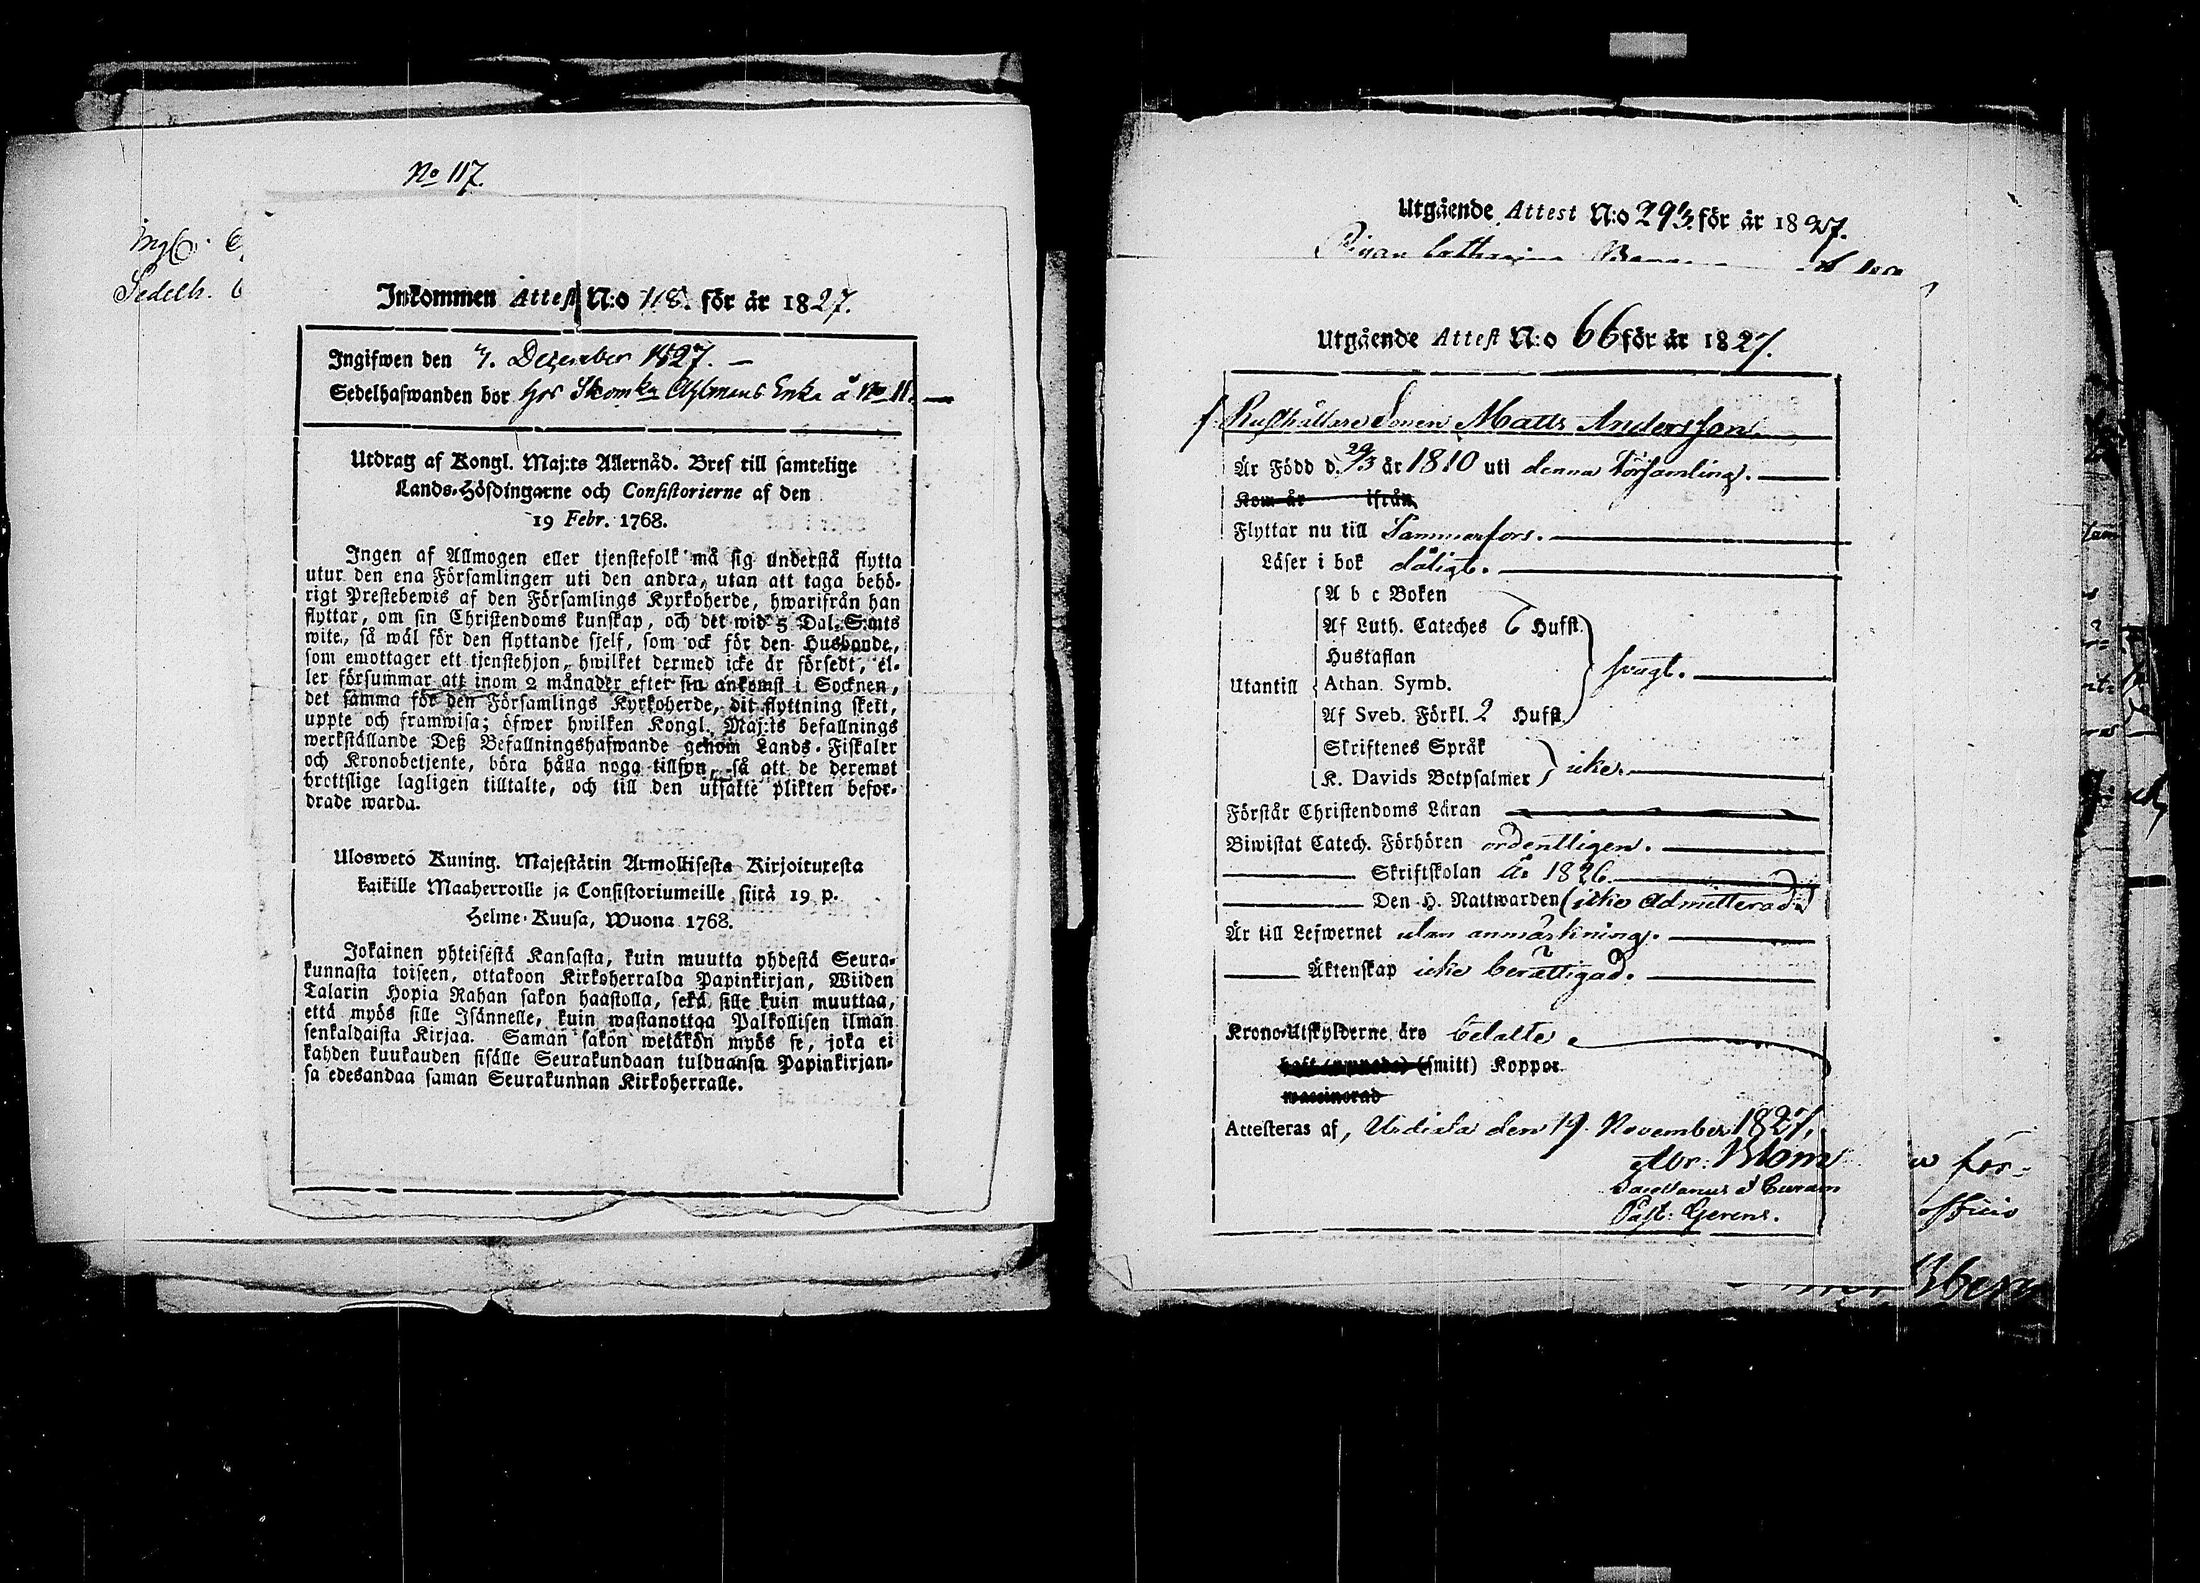 No 117.
Sedelh.
Inkommen Attest N:o 118. för år 1827.
Ingifwen den 7. December 1827. —
Sedelhafwanden bor hos Skomkr Ahlmans Enka å No 11. —
Utdrag af Kongl. Maj:ts Allernåd. Bref till samtelige
Lands-Höfdingarne och Consistorierne af den
19 Febr. 1768.
Ingen af Allmogen eller tjenstefolk må sig understå flytta
utur den ena Församlingen uti den andra, utan att taga behö-
rigt Prestebewis af den Församlings Kyrkoherde, hwarifrån han
flyttar, om sin Christendoms kunskap, och det wid 5 Dal. S:mts
wite, så wäl för den flyttande sjelf, som ock för den Husbonde,
som emottager ett tjenstehjon, hwilket dermed icke är försedt, el-
ler försummar att inom 2 månader efter sin ankomst i Socknen,
det samma för den Församlings Kyrkoherde, dit flyttning skett,
uppte och framwisa; öfwer hwilken Kongl. Maj:ts befallnings
werkställande Deß Befallningshafwande genom Lands-Fiskaler
och Kronobetjente, böra hålla noga tillsyn, så att de deremot
brottslige lagligen tilltalte, och till den utsatte plikten befor-
drade warda.
Uloswetö Kuning. Majestätin Armollisesta Kirjoituxesta
kaikille Maaherroille ja Consistoriumeille siitä 19 p.
Helme-Kuusa, Wuona 1768.
Jokainen yhteisestä Kansasta, kuin muutta yhdestä Seura-
kunnasta toiseen, ottakoon Kirkoherralda Papinkirjan, Wiiden
Talarin Hopia Rahan sakon haastolla, sekä sille kuin muuttaa,
että myös sille Isännelle, kuin wastanottaa Palkollisen ilman
senkaldaista Kirjaa. Saman sakon wetäkön myös se, joka ei
kahden kuukauden sisälle Seurakundaan tulduansa Papinkirjan-
sa edesandaa saman Seurakunnan Kirkoherralle.
Utgående Attest N:o 293. för år 1827.
Pigan Catharina
Utgående Attest N:o 66 för år 1827.
Rusthållare Sonen Matts Andersson.
Är Född d. 29/3 år 1810 uti denna Församling.
Kom år ifrån
Flyttar nu till Tammerfors.
Läser i bok dåligt.
A b c Boken
Af Luth. Cateches 6 Hufst.
Hustaflan
Utantill Athan. Symb. svagt.
Af Sveb. Förkl. 2 Hufst.
Skriftenes Språk
K. Davids Botpsalmer icke.
Förstår Christendoms Läran
Biwistat Catech. Förhören ordentligen.
Skriftskolan År 1826.
Den H. Nattwarden (icke admitterad.)
Är till Lefwernet utan anmärkning.
Äktenskap icke berättigad.
Krono-Utskylderne äro betalte.
haft (ympade) (smitt) Koppor.
waccinerad
Attesteras af, Urdiala den 19. November 1827,
Abr: Blom
Sacellanus & Curam
Past: Gerens.
för-
officio